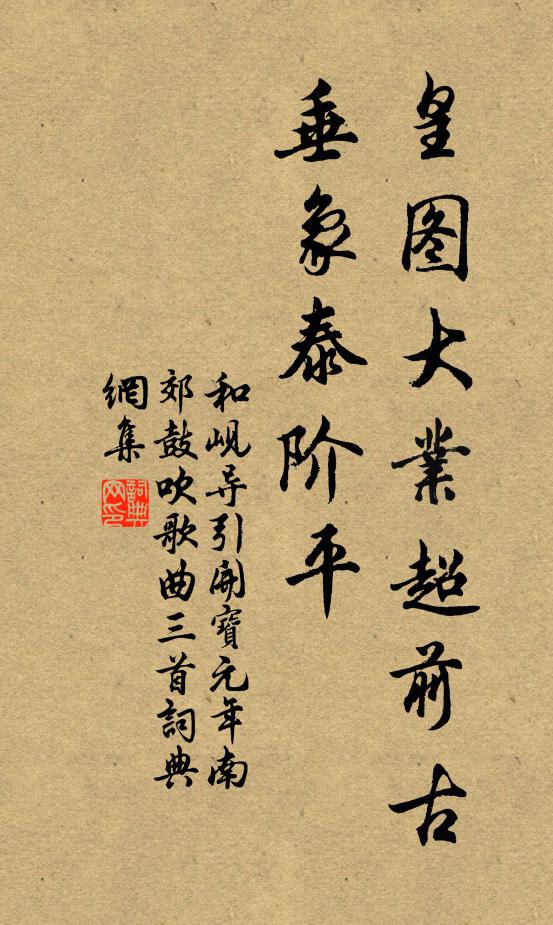 皇图大業超前古
垂象泰阶平
和岘导引開寶元年南
郊鼓吹歌曲三首詞典
網集
詞典
网印